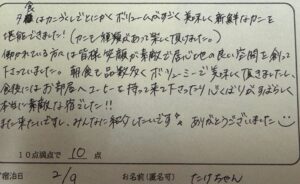 食
夕食はカニづくしでとにかくボリュームがすごく美味しい新鮮なカニを
堪能できました!(カニも種類があって楽しく頂けました。)
働かれている方は皆様笑顔が素敵で居心地の良い空間を創って
下さっていました。朝食も品数多くボリューミーで美味しく頂きましたし、
食後にはお部屋へコーヒーを持って来て下さったり心くばりがすばらしく
本当に素敵な宿でした!!
また来たいですし、みんなに紹介したいです ありがとうございました
10点満点で 10 点
宿泊日 2/9 お名前(匿名可) たけちゃん